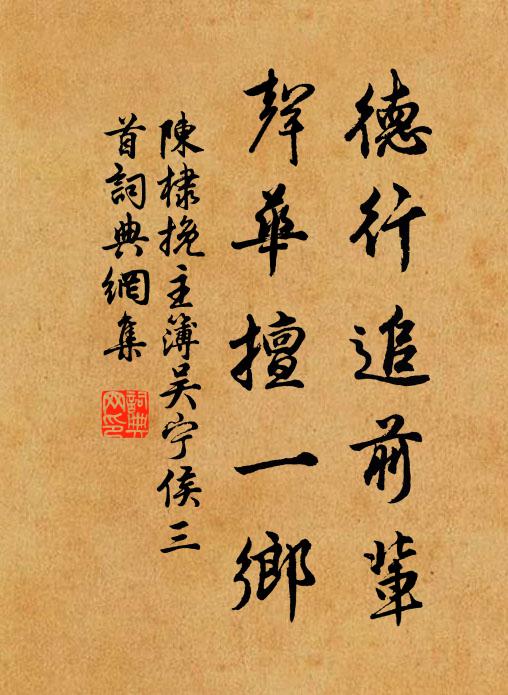 德行追前輩
聲華擅一鄉
陳棣挽主簿吴宁侯三
首詞典網集
詞典
网印